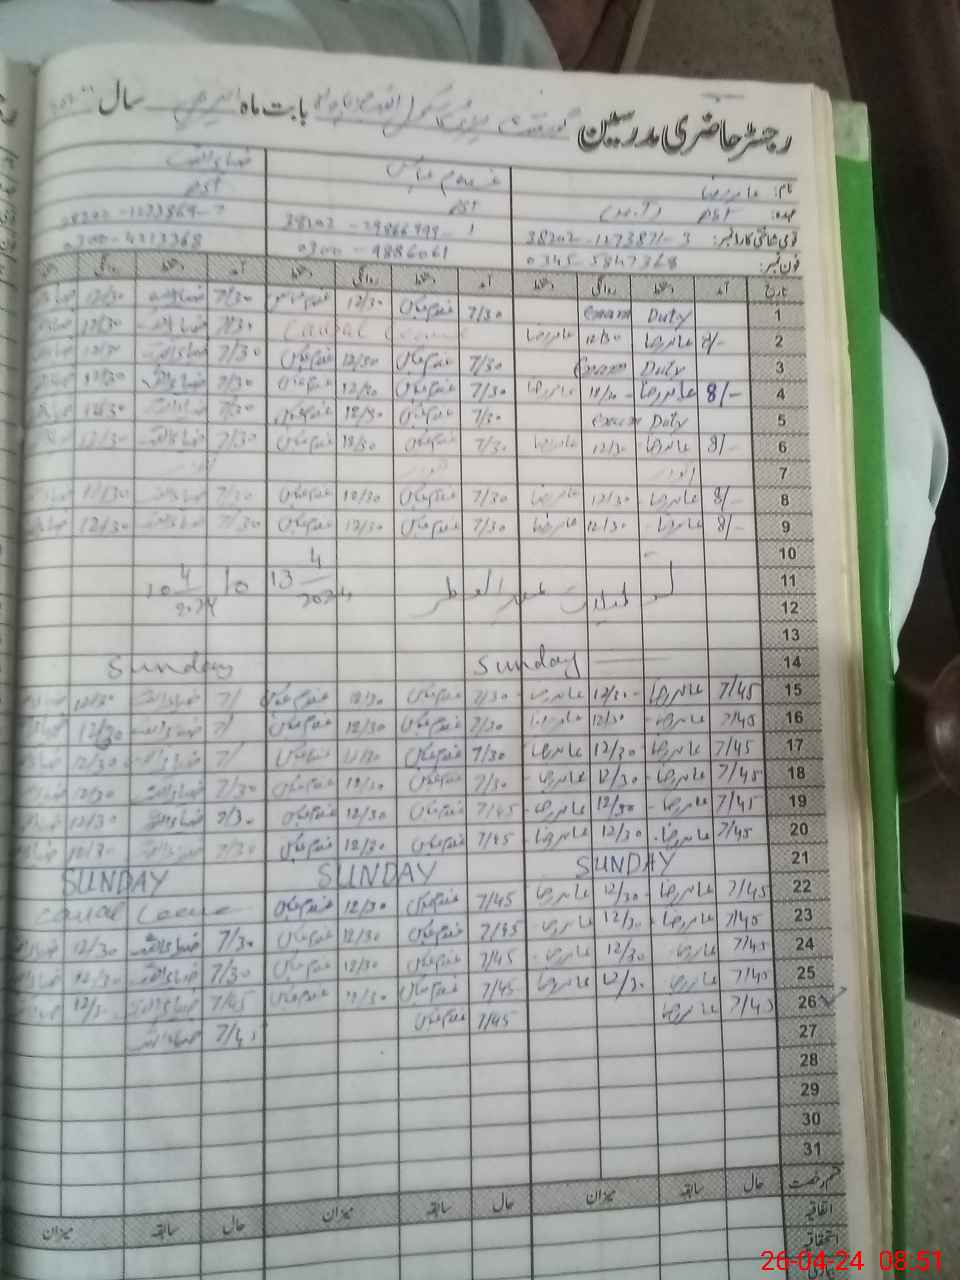 رجسٹر حاضری مدرسین گورنمنٹ بابت ماہ اپریل سال
نام: عامر رضا غلام عباس ضیاء اللہ
عہدہ: PST PST PST
قومی شناختی کارڈ نمبر: 38202-1273871-3 38202-29866999-1 38202-1273869-7
فون نمبر: 0345-5847368 0300-9886061 0300-4213368
تاریخ آمد دستخط روانگی دستخط آمد دستخط روانگی دستخط آمد دستخط روانگی دستخط
1 Exam Duty 7/30 غلام عباس 12/30 غلام عباس 7/30 ضیاء اللہ 12/30
2 8/- عامر رضا 12/30 عامر رضا Casual Leave 7/30 ضیاء اللہ 12/30
3 Exam Duty 7/30 غلام عباس 12/30 غلام عباس 7/30 ضیاء اللہ 12/30
4 8/- عامر رضا 12/30 عامر رضا 7/30 غلام عباس 12/30 غلام عباس 7/30 ضیاء اللہ 12/30
5 Exam Duty 7/30 غلام عباس 12/30 غلام عباس 7/30 ضیاء اللہ 12/30
6 8/- عامر رضا 12/30 عامر رضا 7/30 غلام عباس 12/30 غلام عباس 7/30 ضیاء اللہ 12/30
7 اتوار اتوار اتوار
8 8/- عامر رضا 12/30 عامر رضا 7/30 غلام عباس 12/30 غلام عباس 7/30 ضیاء اللہ 12/30
9 8/- عامر رضا 12/30 عامر رضا 7/30 غلام عباس 12/30 غلام عباس 7/30 ضیاء اللہ 12/30
10
11 تعطیلات عید الفطر 13 4/2024 10 10 4/2024
12
13
14 Sunday Sunday
15 7/45 عامر رضا 12/30 عامر رضا 7/30 غلام عباس 12/30 غلام عباس 7/ ضیاء اللہ 12/30
16 7/45 عامر رضا 12/30 عامر رضا 7/30 غلام عباس 12/30 غلام عباس 7/ ضیاء اللہ 12/30
17 7/45 عامر رضا 12/30 عامر رضا 7/30 غلام عباس 12/30 غلام عباس 7/ ضیاء اللہ 12/30
18 7/45 عامر رضا 12/30 عامر رضا 7/30 غلام عباس 12/30 غلام عباس 7/30 ضیاء اللہ 12/30
19 7/45 عامر رضا 12/30 عامر رضا 7/45 غلام عباس 12/30 غلام عباس 7/30 ضیاء اللہ 12/30
20 7/45 عامر رضا 12/30 عامر رضا 7/45 غلام عباس 12/30 غلام عباس 7/30 ضیاء اللہ 12/30
21 SUNDAY SUNDAY SUNDAY
22 7/45 عامر رضا 12/30 عامر رضا 7/45 غلام عباس 12/30 غلام عباس Casual Leave
23 7/45 عامر رضا 12/30 عامر رضا 7/45 غلام عباس 12/30 غلام عباس 7/30 ضیاء اللہ 12/30
24 7/45 عامر رضا 12/30 عامر رضا 7/45 غلام عباس 12/30 غلام عباس 7/30 ضیاء اللہ 12/30
25 7/45 عامر رضا 12/30 عامر رضا 7/45 غلام عباس 12/30 غلام عباس 7/45 ضیاء اللہ
26 7/45 عامر رضا 7/45 غلام عباس 7/45 ضیاء اللہ
27
28
29
30
31
قسم رخصت حال سابقہ میزان حال سابقہ میزان حال سابقہ میزان
اتفاقیہ
استحقاقیہ
26-04-24 08:51